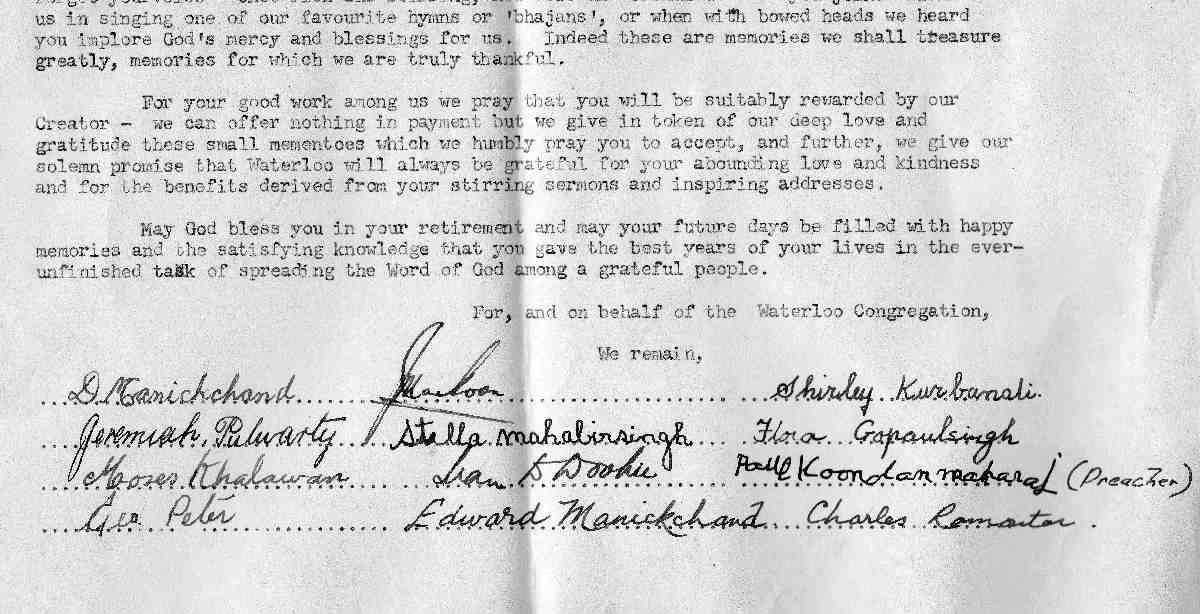 us in singing one of our favourite hymns or 'bhajans', or when with bowed heads we heard
you implore God's mercy and blessings for us. Indeed these are memories we shall treasure
greatly, memories for which we are truly thankful.
For your good work among us we pray that you will be suitably rewarded by our
Creator - we can offer nothing in payment but we give in token of our deep love and
gratitude these small mementoes which we humbly pray you to accept, and further, we give our
solemn promise that Waterloo will always be grateful for your abounding love and kindness
and for the benefits derived from your stirring sermons and inspiring addresses.
May God bless you in your retirement and may your future days be filled with happy
memories and the satisfying knowledge that you gave the best years of your lives in the ever-
unfinished task of spreading the Word of God among a grateful people.
For, and on behalf of the Waterloo Congregation,
We remain,
D. Manickchand Shirley Kurbanali.
Jeremiah. Pulwarty Stella mahabirsingh Flora Gopaulsingh
Moses Khalawan Paul Koondan maharaj (Preacher)
Geo Peter Edward Manickchand Charles